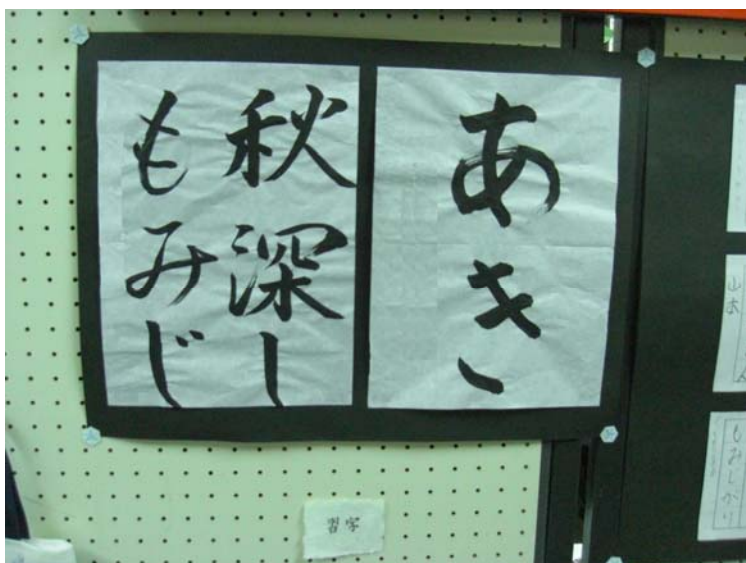 あき
秋深し
もみじ
習字
山本
もみじがり